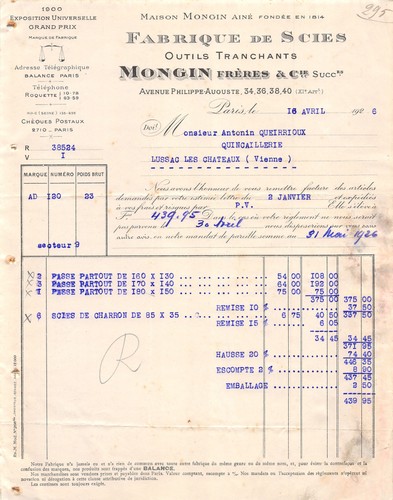 995
1900
EXPOSITION UNIVERSELLE
GRAND PRIX
MARQUE DE FABRIQUE
Adresse Télégraphique
BALANCE PARIS
Téléphone
ROQUETTE 10-78
CHÈQUES POSTAUX
2710 — PARIS
MAISON MONGIN AINÉ FONDÉE EN 1814
FABRIQUE DE SCIES
OUTILS TRANCHANTS
MONGIN FRÈRES & Cie Succrs
AVENUE PHILIPPE-AUGUSTE, 34, 36, 38, 40 (XIe Arrt)
Paris, le 16 AVRIL 1926
Doit M
onsieur Antonin QUEIRRIOUX
QUINCAILLERIE
LUSSAC LES CHATEAUX ( Vienne )
R 38524
V I
MARQUE NUMÉRO POIDS BRUT
AD 180 23
secteur 9
Nous avons l'honneur de vous remettre facture des articles
demandés par votre estimée lettre du 2 JANVIER et expédiés
à vos frais et risques par P.V. Elle s'élève à
F. 439.95 Dans le cas où votre règlement ne nous serait
pas parvenu 30 avril nous disposerions sur vous
sans autre avis, en notre mandat de pareille somme au 31 Mai 1926
2 PASSE PARTOUT DE 160 X 130 54 00 108 00
3 PASSE PARTOUT DE 170 X 140 64 00 192 00
1 PESSE PARTOUT DE 180 X 150 75 00 75 00
375 00 375 00
REMISE 10 % 37 50
6 SCIES DE CHARRON DE 85 X 35 6 75 40 50 337 50
REMISE 15 % 6 05
34 45 34 45
371 95
HAUSSE 20 % 74 40
446 35
ESCOMPTE 2 % 8 90
437 45
EMBALLAGE 2 50
439 95
R
Notre Fabrique n'a jamais eu et n'a rien de commun avec toute autre fabrique du même genre ou de même nom, et, pour éviter la contrefaçon et la
confusion des marques, nos produits sont frappés d'une BALANCE.
Nos marchandises sont vendues prises et payables dans Paris.